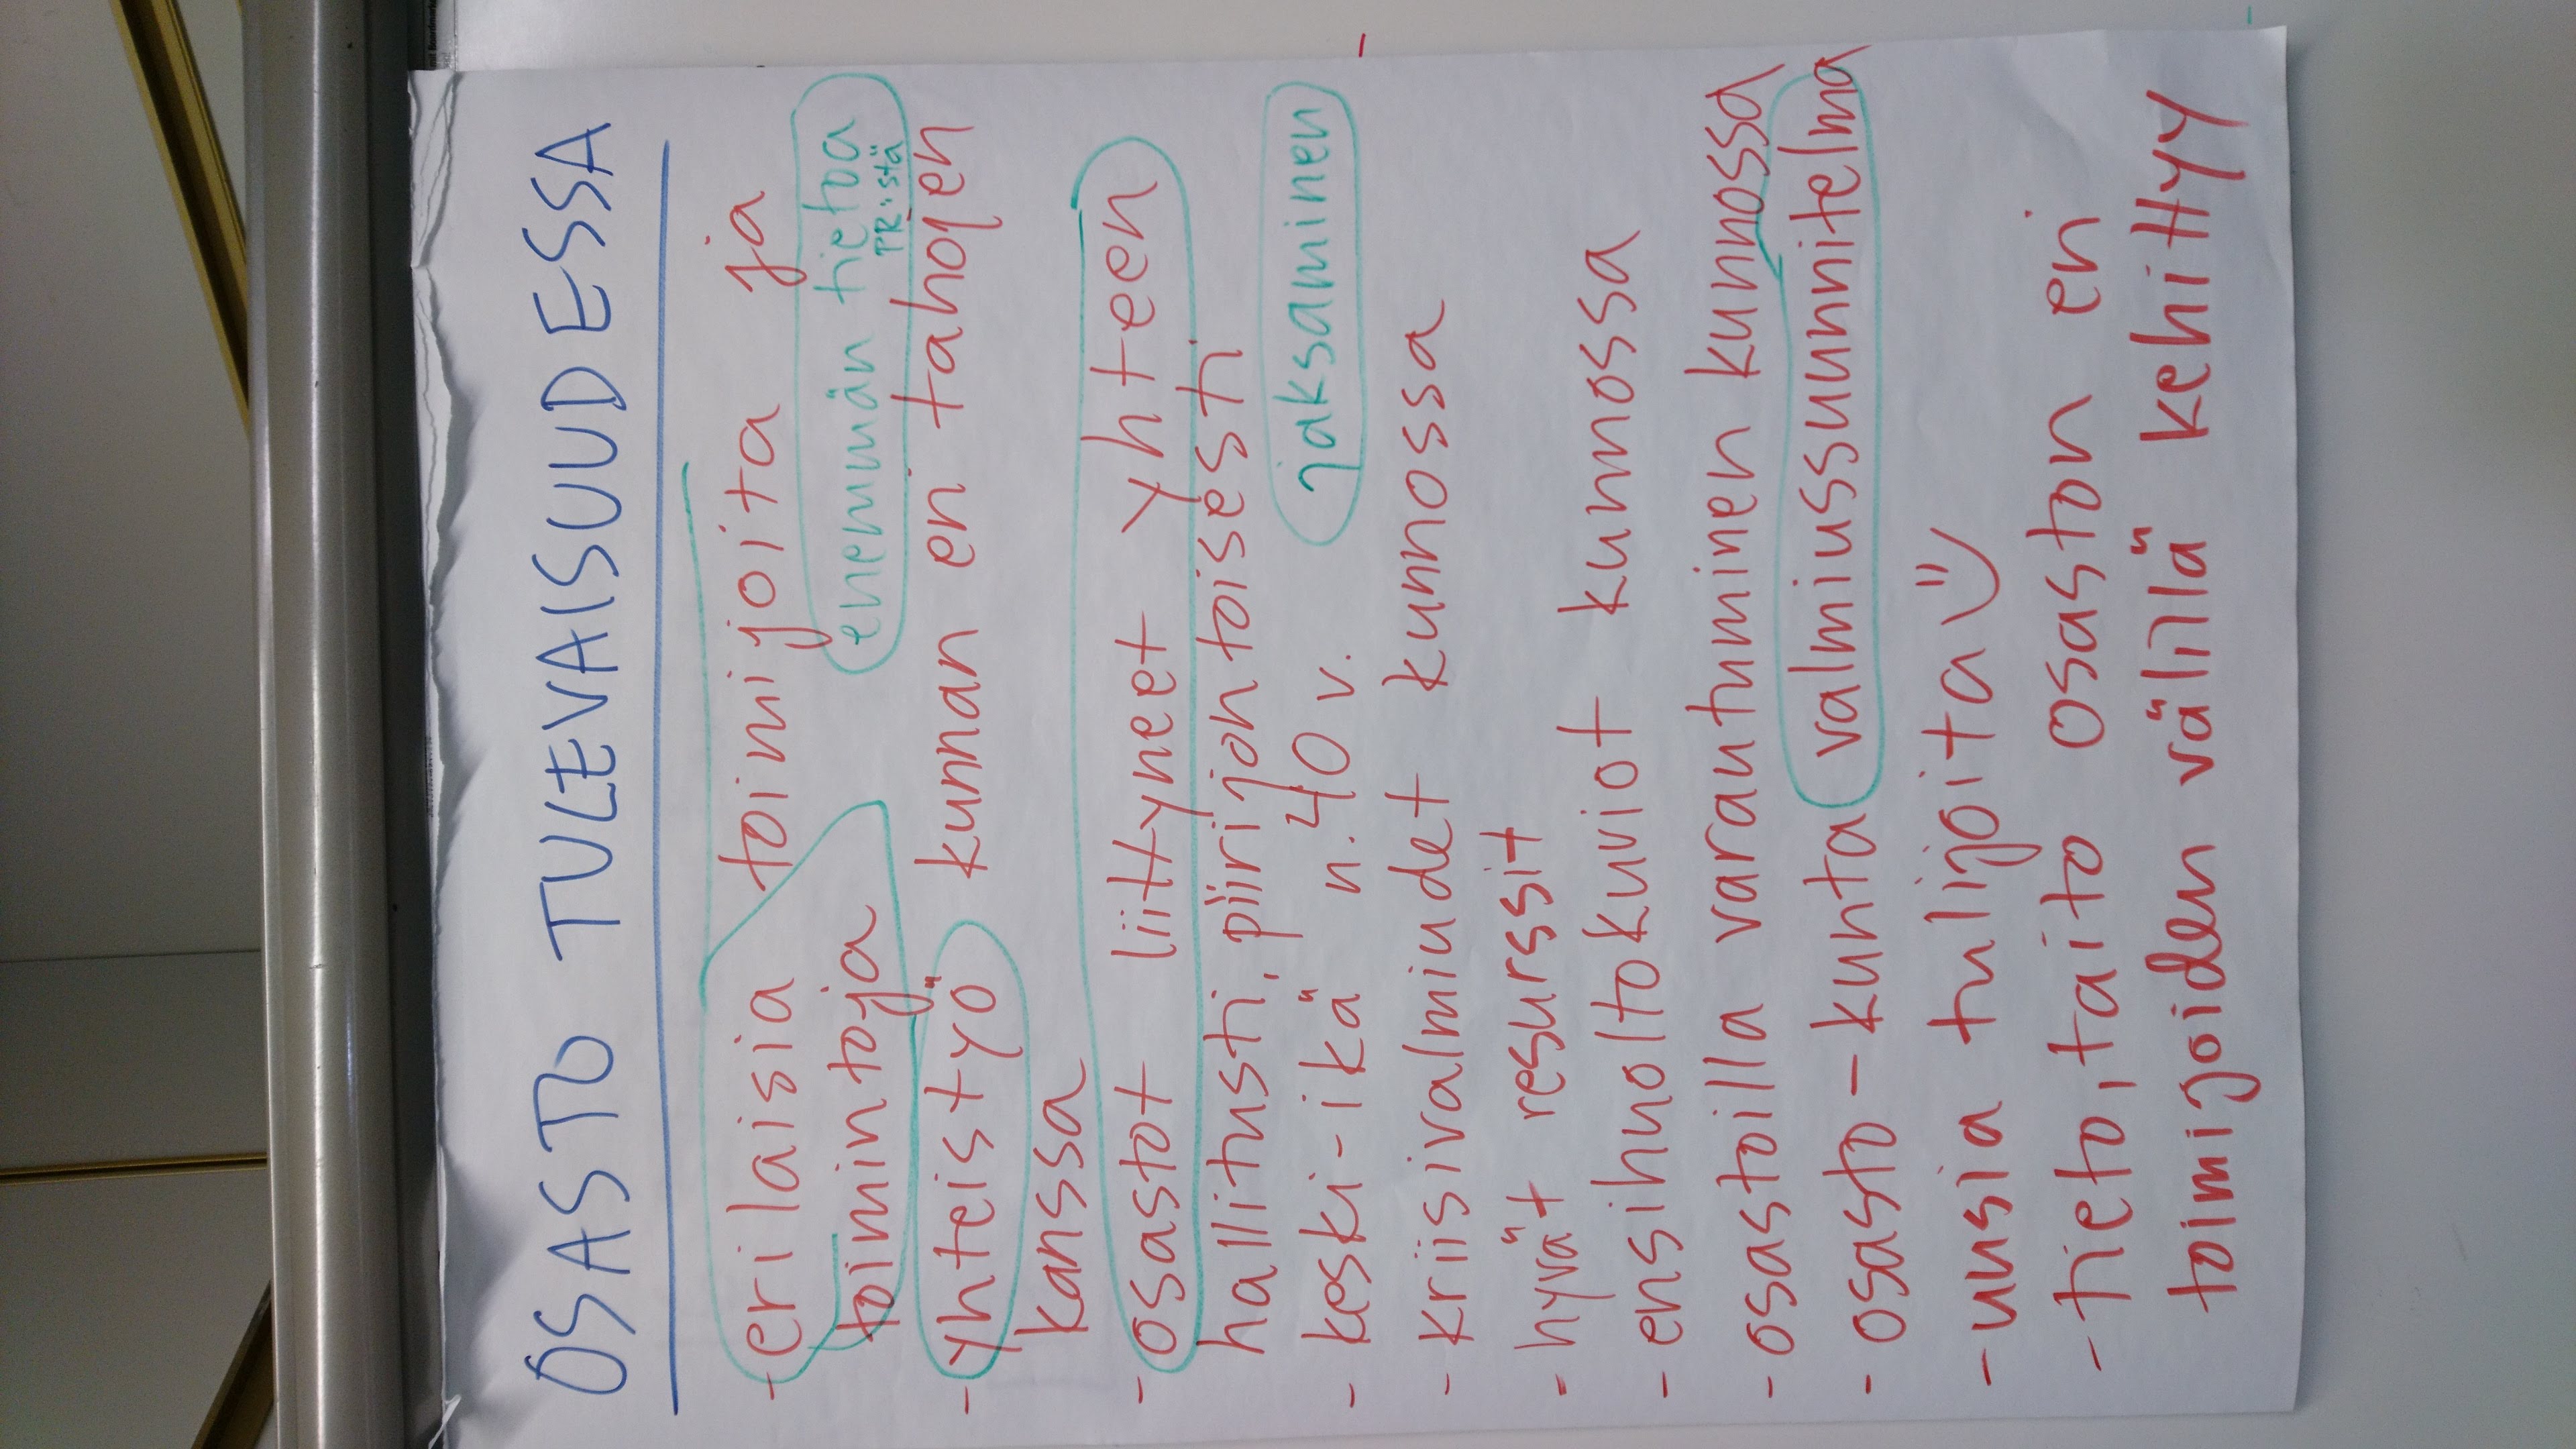 OSASTO TULEVAISUUDESSA
- erilaisia toimijoita ja
toimintoja
enemmän tietoa
TR:stä
- yhteistyö kunnan eri tahojen
kanssa
- osastot liittyneet yhteen
hallitusti, piirijohtoisesti
- keski-ikä n. 40 v.
jaksaminen
- kriisivalmiudet kunnossa
- hyvät resurssit
- ensihuoltokuviot kunnossa
- osastoilla varautuminen kunnossa
- osasto-kunta valmiussuunnitelma
- uusia tulijoita
- tieto, taito osaston eri
toimijoiden välillä kehittyy